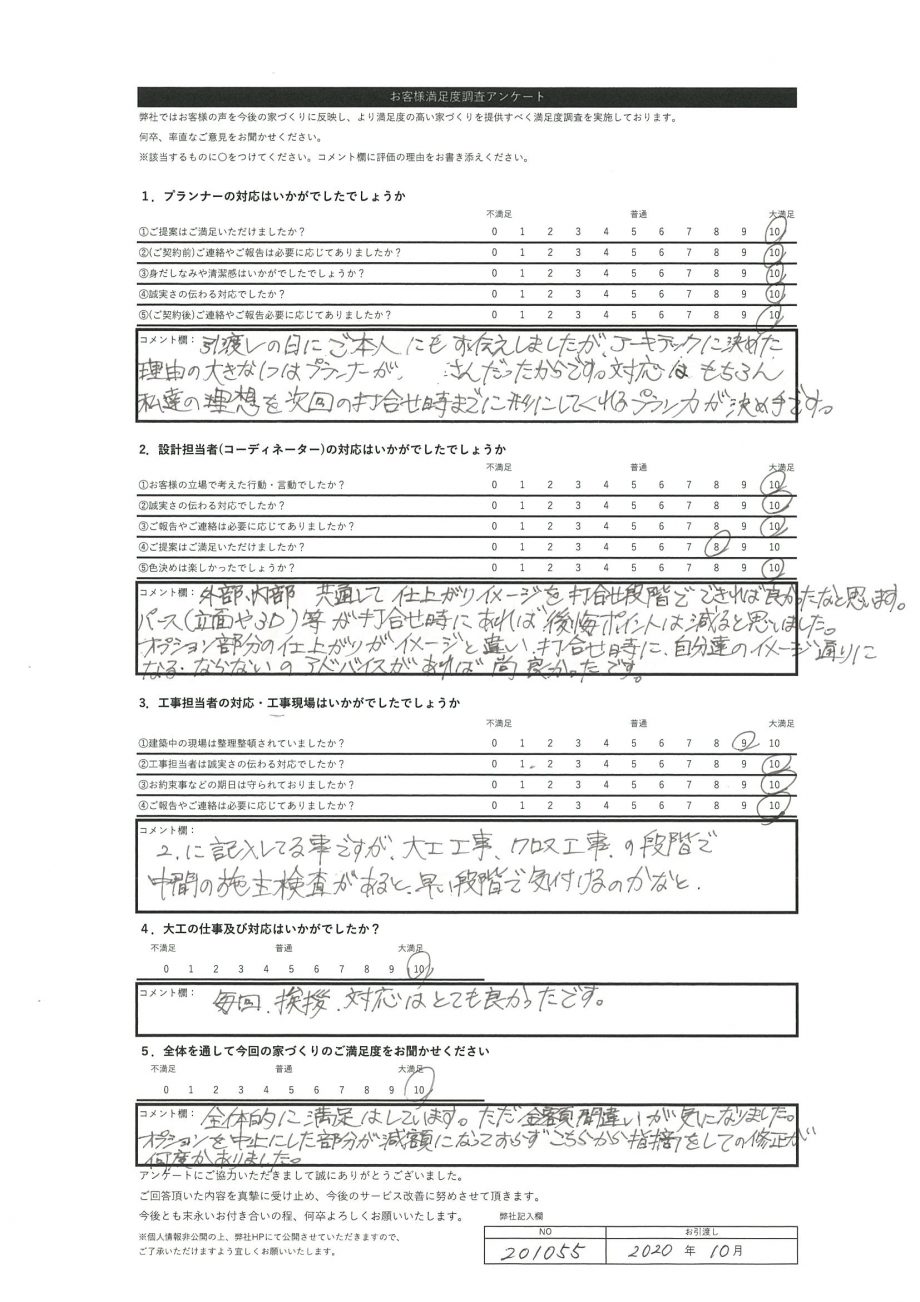 お客様満足度調査アンケート
弊社ではお客様の声を今後の家づくりに反映し、より満足度の高い家づくりを提供すべく満足度調査を実施しております。
何卒、率直なご意見をお聞かせください。
※該当するものに〇をつけてください。コメント欄に評価の理由をお書き添えください。
1．プランナーの対応はいかがでしたでしょうか
不満足 普通 大満足
①ご提案はご満足いただけましたか？ 0 1 2 3 4 5 6 7 8 9 10
②(ご契約前)ご連絡やご報告は必要に応じてありましたか？ 0 1 2 3 4 5 6 7 8 9 10
③身だしなみや清潔感はいかがでしたでしょうか？ 0 1 2 3 4 5 6 7 8 9 10
④誠実さの伝わる対応でしたか？ 0 1 2 3 4 5 6 7 8 9 10
⑤(ご契約後)ご連絡やご報告必要に応じてありましたか？ 0 1 2 3 4 5 6 7 8 9 10
コメント欄： 引渡しの日にご本人にもお伝えしましたが、アーキテックに決めた
理由の大きな1つはプランナーが、 さんだったからです。対応はもちろん
私達の理想を次回の打合せ時までに形にしてくれるプラン力が決め手です。
2．設計担当者(コーディネーター)の対応はいかがでしたでしょうか
不満足 普通 大満足
①お客様の立場で考えた行動・言動でしたか？ 0 1 2 3 4 5 6 7 8 9 10
②誠実さの伝わる対応でしたか？ 0 1 2 3 4 5 6 7 8 9 10
③ご報告やご連絡は必要に応じてありましたか？ 0 1 2 3 4 5 6 7 8 9 10
④ご提案はご満足いただけましたか？ 0 1 2 3 4 5 6 7 8 9 10
⑤色決めは楽しかったでしょうか？ 0 1 2 3 4 5 6 7 8 9 10
コメント欄： 外部、内部 共通して仕上がりイメージを打合せ段階でできれば良かったなと思います。
パース(立面や3D)等が打合せ時にあれば後悔ポイントは減ると思いました。
オプション部分の仕上がりがイメージと違い、打合せ時に、自分達のイメージ通りに
なる・ならないのアドバイスがあれば尚良かったです。
3．工事担当者の対応・工事現場はいかがでしたでしょうか
不満足 普通 大満足
①建築中の現場は整理整頓されていましたか？ 0 1 2 3 4 5 6 7 8 9 10
②工事担当者は誠実さの伝わる対応でしたか？ 0 1 2 3 4 5 6 7 8 9 10
③お約束事などの期日は守られておりましたか？ 0 1 2 3 4 5 6 7 8 9 10
④ご報告やご連絡は必要に応じてありましたか？ 0 1 2 3 4 5 6 7 8 9 10
コメント欄：
2.に記入してる事ですが、大工工事、クロス工事、の段階で
中間の施主検査があると、早い段階で気付けるのかなと.
4．大工の仕事及び対応はいかがでしたか？
不満足 普通 大満足
0 1 2 3 4 5 6 7 8 9 10
コメント欄： 毎回、挨拶、対応はとても良かったです。
5．全体を通して今回の家づくりのご満足度をお聞かせください
不満足 普通 大満足
0 1 2 3 4 5 6 7 8 9 10
コメント欄： 全体的に満足はしています。ただ金額間違いが気になりました。
オプションを中止にした部分が減額になっておらずこちらから指摘をしての修正が
何度かありました。
アンケートにご協力いただきまして誠にありがとうございました。
ご回答頂いた内容を真摯に受け止め、今後のサービス改善に努めさせて頂きます。
今後とも末永いお付き合いの程、何卒よろしくお願いいたします。 弊社記入欄
※個人情報非公開の上、弊社HPにて公開させていただきますので、
ご了承いただけますよう宜しくお願いいたします。
NO お引渡し
201055 2020 年 10 月